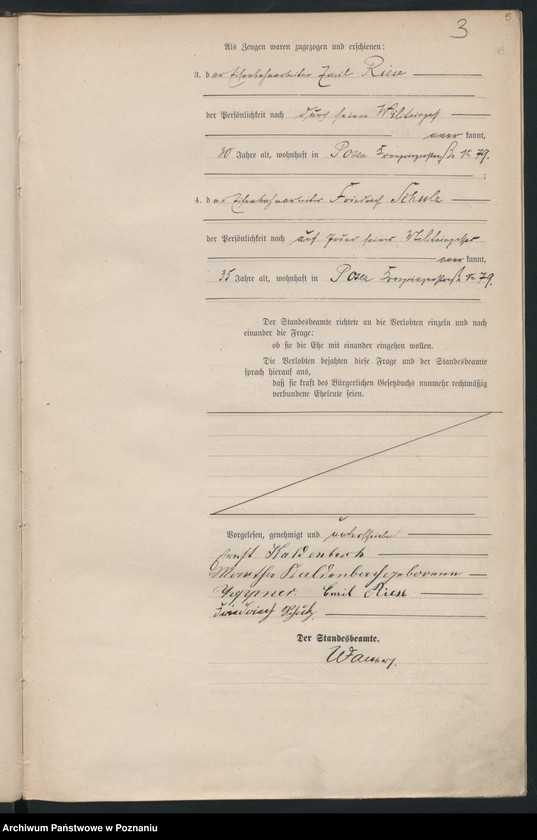 3
Als Zeugen waren zugezogen und erschienen:
3. der Eisenbahnarbeiter Emil Riese
der Persönlichkeit nach durch seinen
kannt,
30 Jahre alt, wohnhaft in Posen Kronprinzenstraße № 79.
;
4. der Eisenbahnarbeiter Friedrich Schulz
der Persönlichkeit nach auf Grund seines
kannt,
35 Jahre alt, wohnhaft in Posen Kronprinzenstraße № 79.
Der Standesbeamte richtete an die Verlobten einzeln und nach
einander die Frage:
ob sie die Ehe mit einander eingehen wollen.
Die Verlobten bejahten diese Frage und der Standesbeamte
sprach hierauf aus,
daß sie kraft des Bürgerlichen Gesetzbuchs nunmehr rechtmäßig
verbundene Eheleute seien.
Vorgelesen, genehmigt und unterschrieben
Ernst Haldenbach
Martha Haldenbach geborene
Emil Riese
Friedrich Schulz.
Der Standesbeamte.
Archiwum Państwowe w Poznaniu